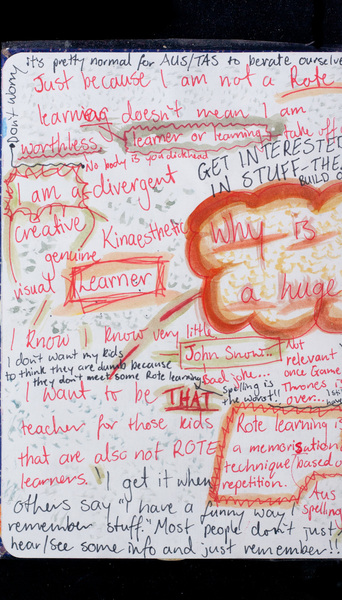 Don't worry
it's pretty normal for AUS/TAS to berate ourselve
Just because I am not a Rote
learning doesn't mean I am
worthless.
learner or learning
take off
No body is you dickhead
GET INTERESTED
IN STUFF-THE
BUILD O
I am a divergent
creative Kinaesthetic
genuine
visual Learner
Why is
a huge
I know I know very little
John Snow..
Sad joke...
Not
relevant
once Game
Thrones i
over...
I don't want my kids
to think they are dumb because
they don't meet some Rote learning
Spelling is
the worst!!
I want to be THAT
teacher for those kids
that are also not ROTE
learners.
Rote learning is
a memorisation
technique based o
repetition.
Aus
spelling
I get it when
others say "I have a funny way
remember stuff." Most people don't just
hear/see some info and just remember!!